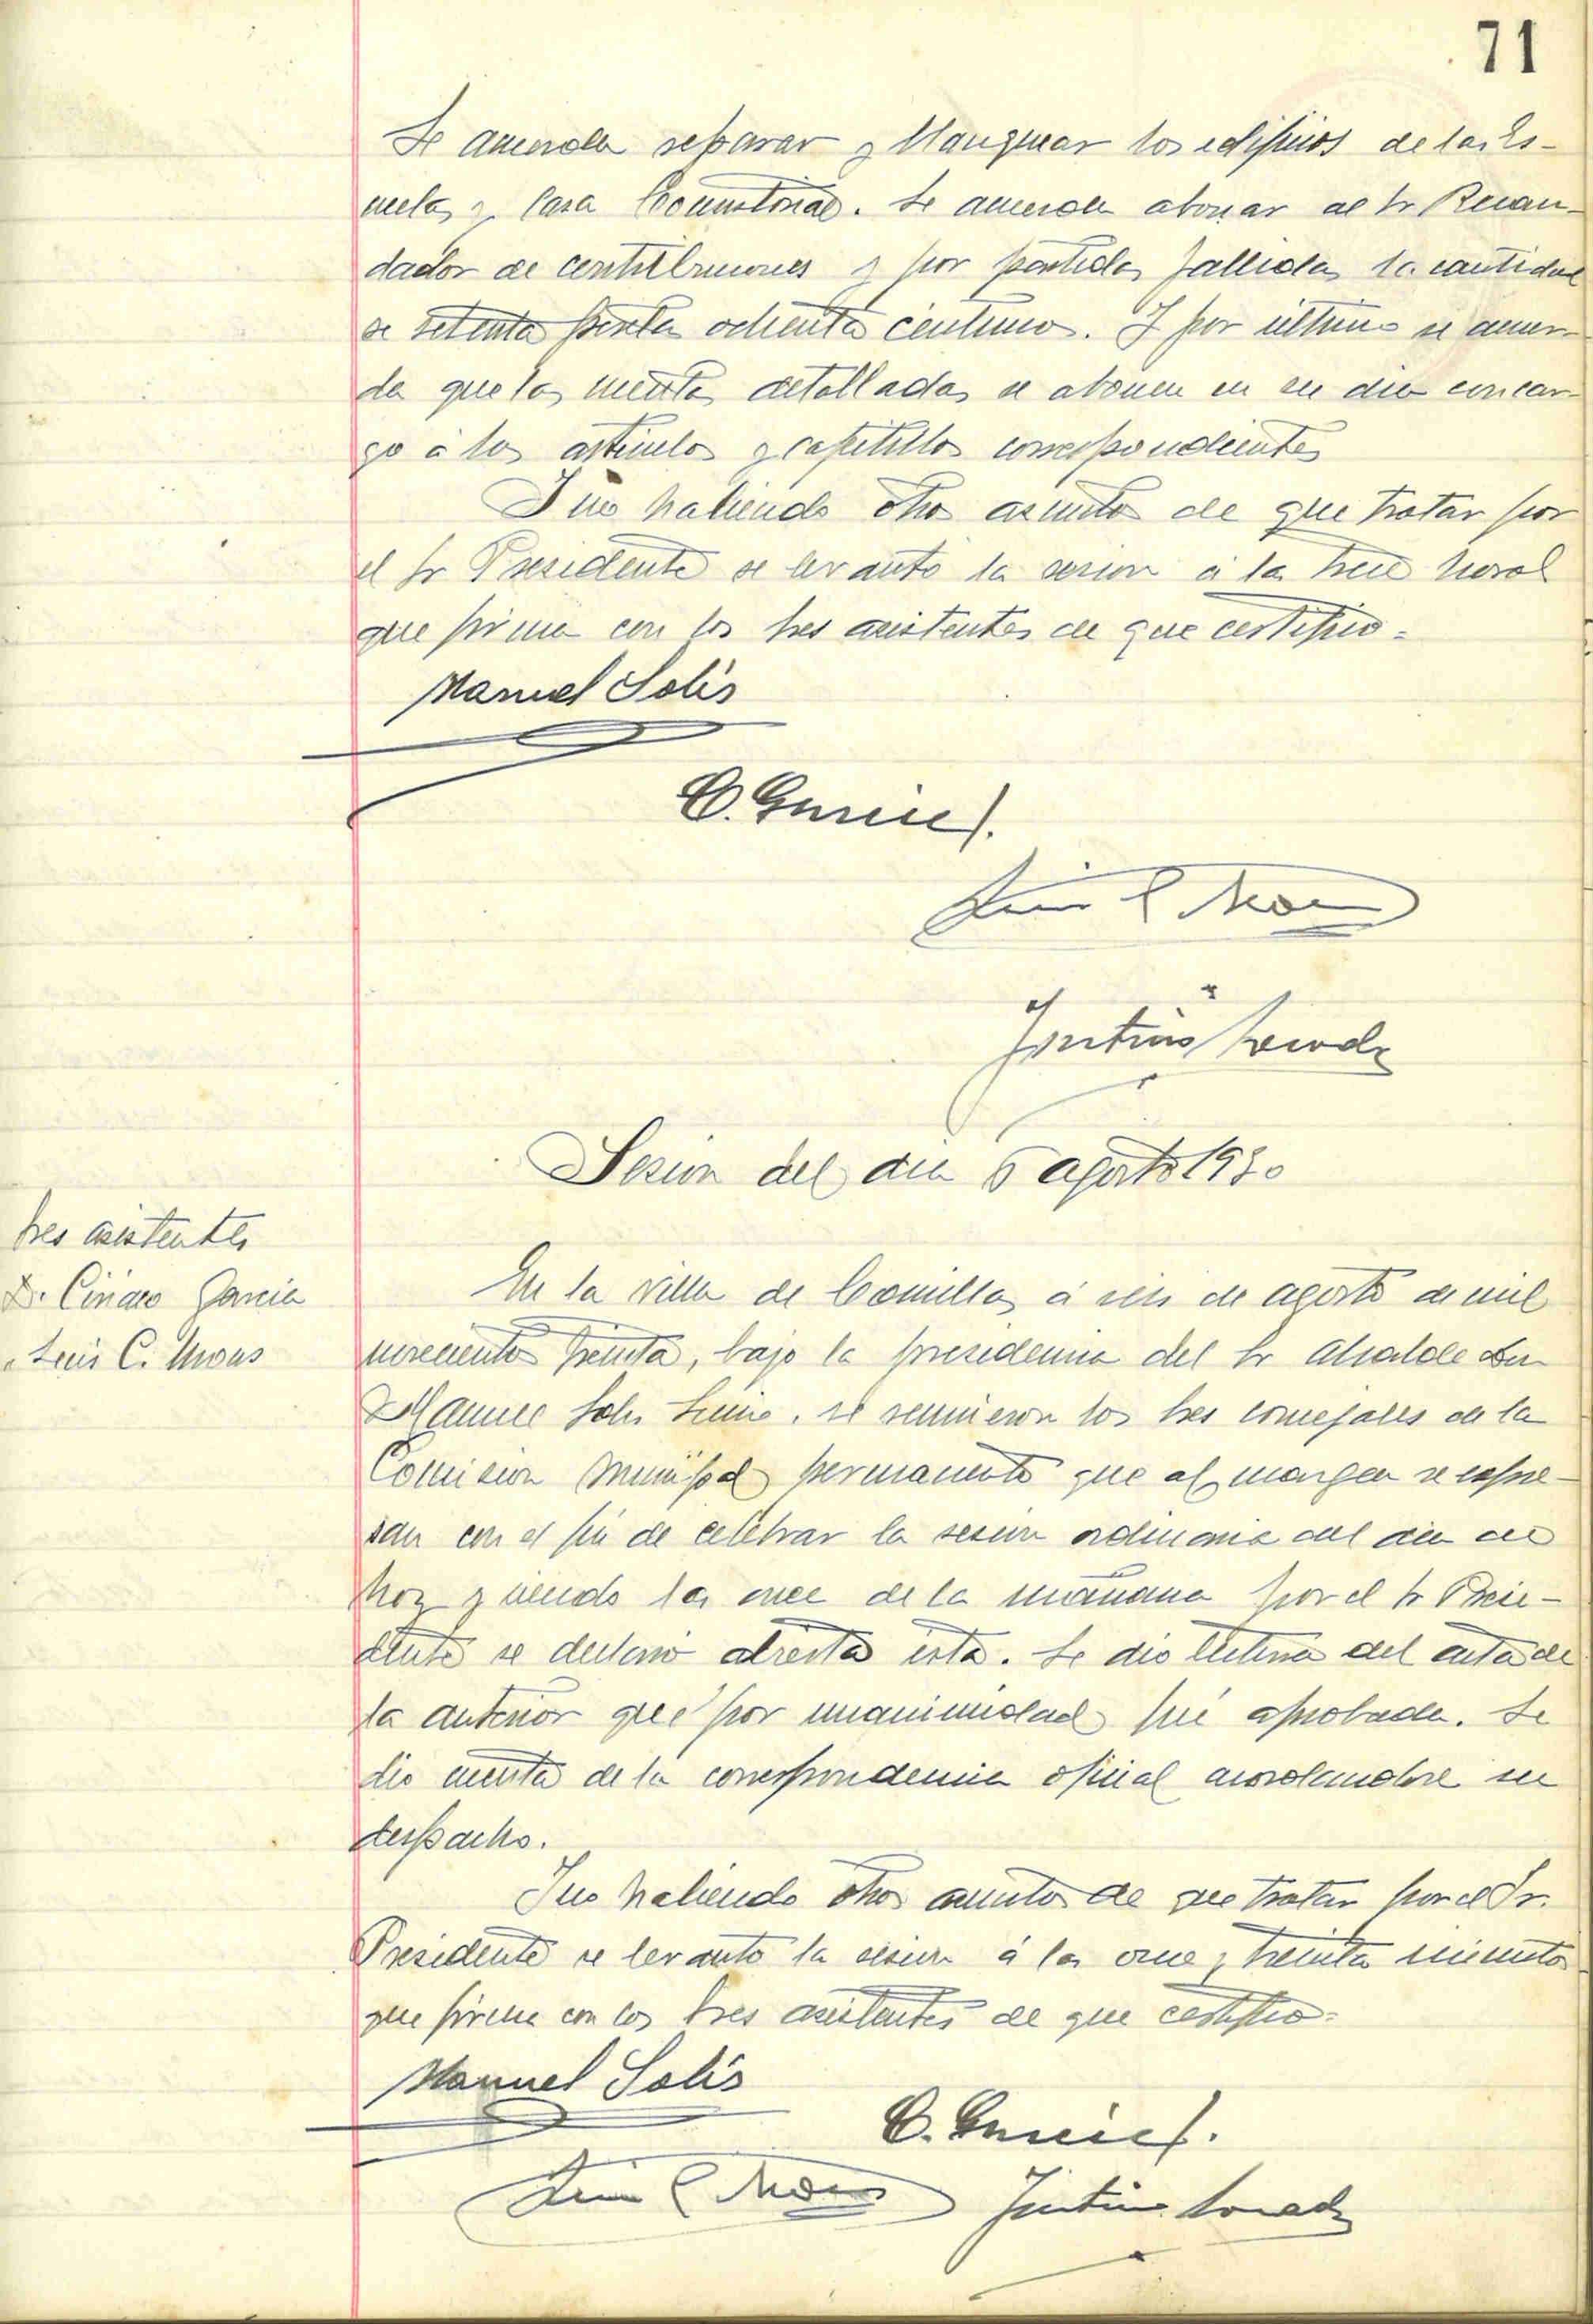 71
Se acuerda reparar y blanquear los edificios de las Es-
cuelas y Casa Consistorial. Se acuerda abonar al Sr Recau-
dador de contribuciones y por partidas fallidas la cantidad
de setenta pesetas ochenta centimos. Y por último se acuer-
da que las cuentas detalladas se abonen en su dia con car-
go á los articulos y capitulos correspondientes
Y no habiendo otros asuntos de que tratar por
el Sr Presidente se levantó la sesion á las trece horas
que firma con los Sres asistentes de que certifico=
Manuel Solís
C. García
Luis C Mous
Justino
Sesion del dia 6 agosto 1930
Sres asistentes
D. Ciriaco Garcia
" Luis C. Mous
En la villa de Comillas á seis de agosto de mil
novecientos treinta, bajo la presidencia del Sr Alcalde Don
Manuel Solis se reunieron los Sres concejales de la
Comision Municipal permanente que al margen se expre-
san con el fin de celebrar la sesion ordinaria del dia de
hoy y siendo las once de la mañana por el Sr Presi-
dente se declaró abierta esta. Se dio lectura del acta de
la anterior que por unanimidad fué aprobada. Se
dio cuenta de la correspondencia oficial acordandose su
despacho.
Y no habiendo otros asuntos de que tratar por el Sr.
Presidente se levantó la sesion á las once y treinta minutos
que firma con los Sres asistentes de que certifico=
Manuel Solís
C. García
Luis C Mous Justino